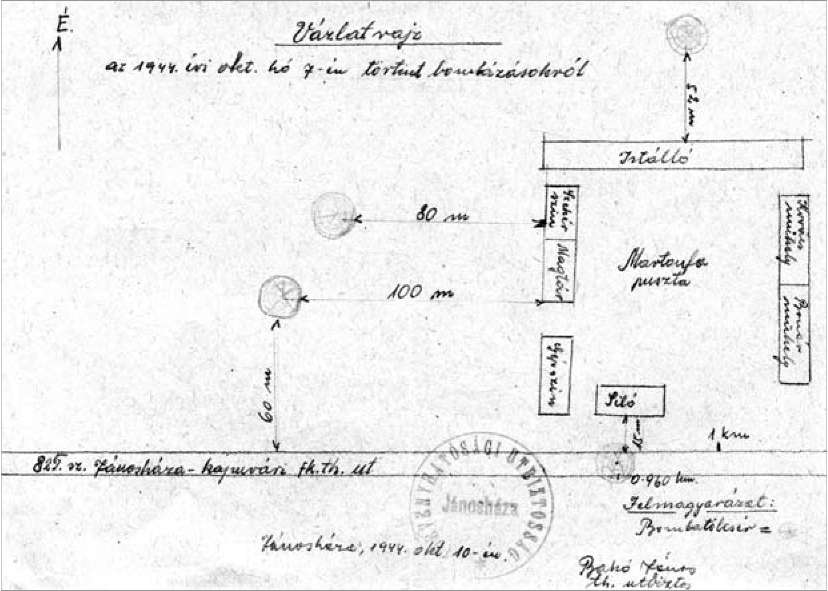 É.
Vázlatrajz
az 1944. évi okt. hó 7-én történt bombázásokról
52 m
Istálló
Szekér
szín
80 m
Magtár
100 m
Martonfa
puszta
Kovács
műhely
Bognár
műhely
60 m
Gépszín
Siló
1 km
825. sz. Jánosháza-kapuvári th. út
0.960 km.
TÖRVÉNYHATÓSÁGI ÚTBIZTOSSÁG
Jánosháza
Jelmagyarázat:
Bombatölcsér =
Jánosháza, 1944. okt. 10-én.
János
th. útbiztos